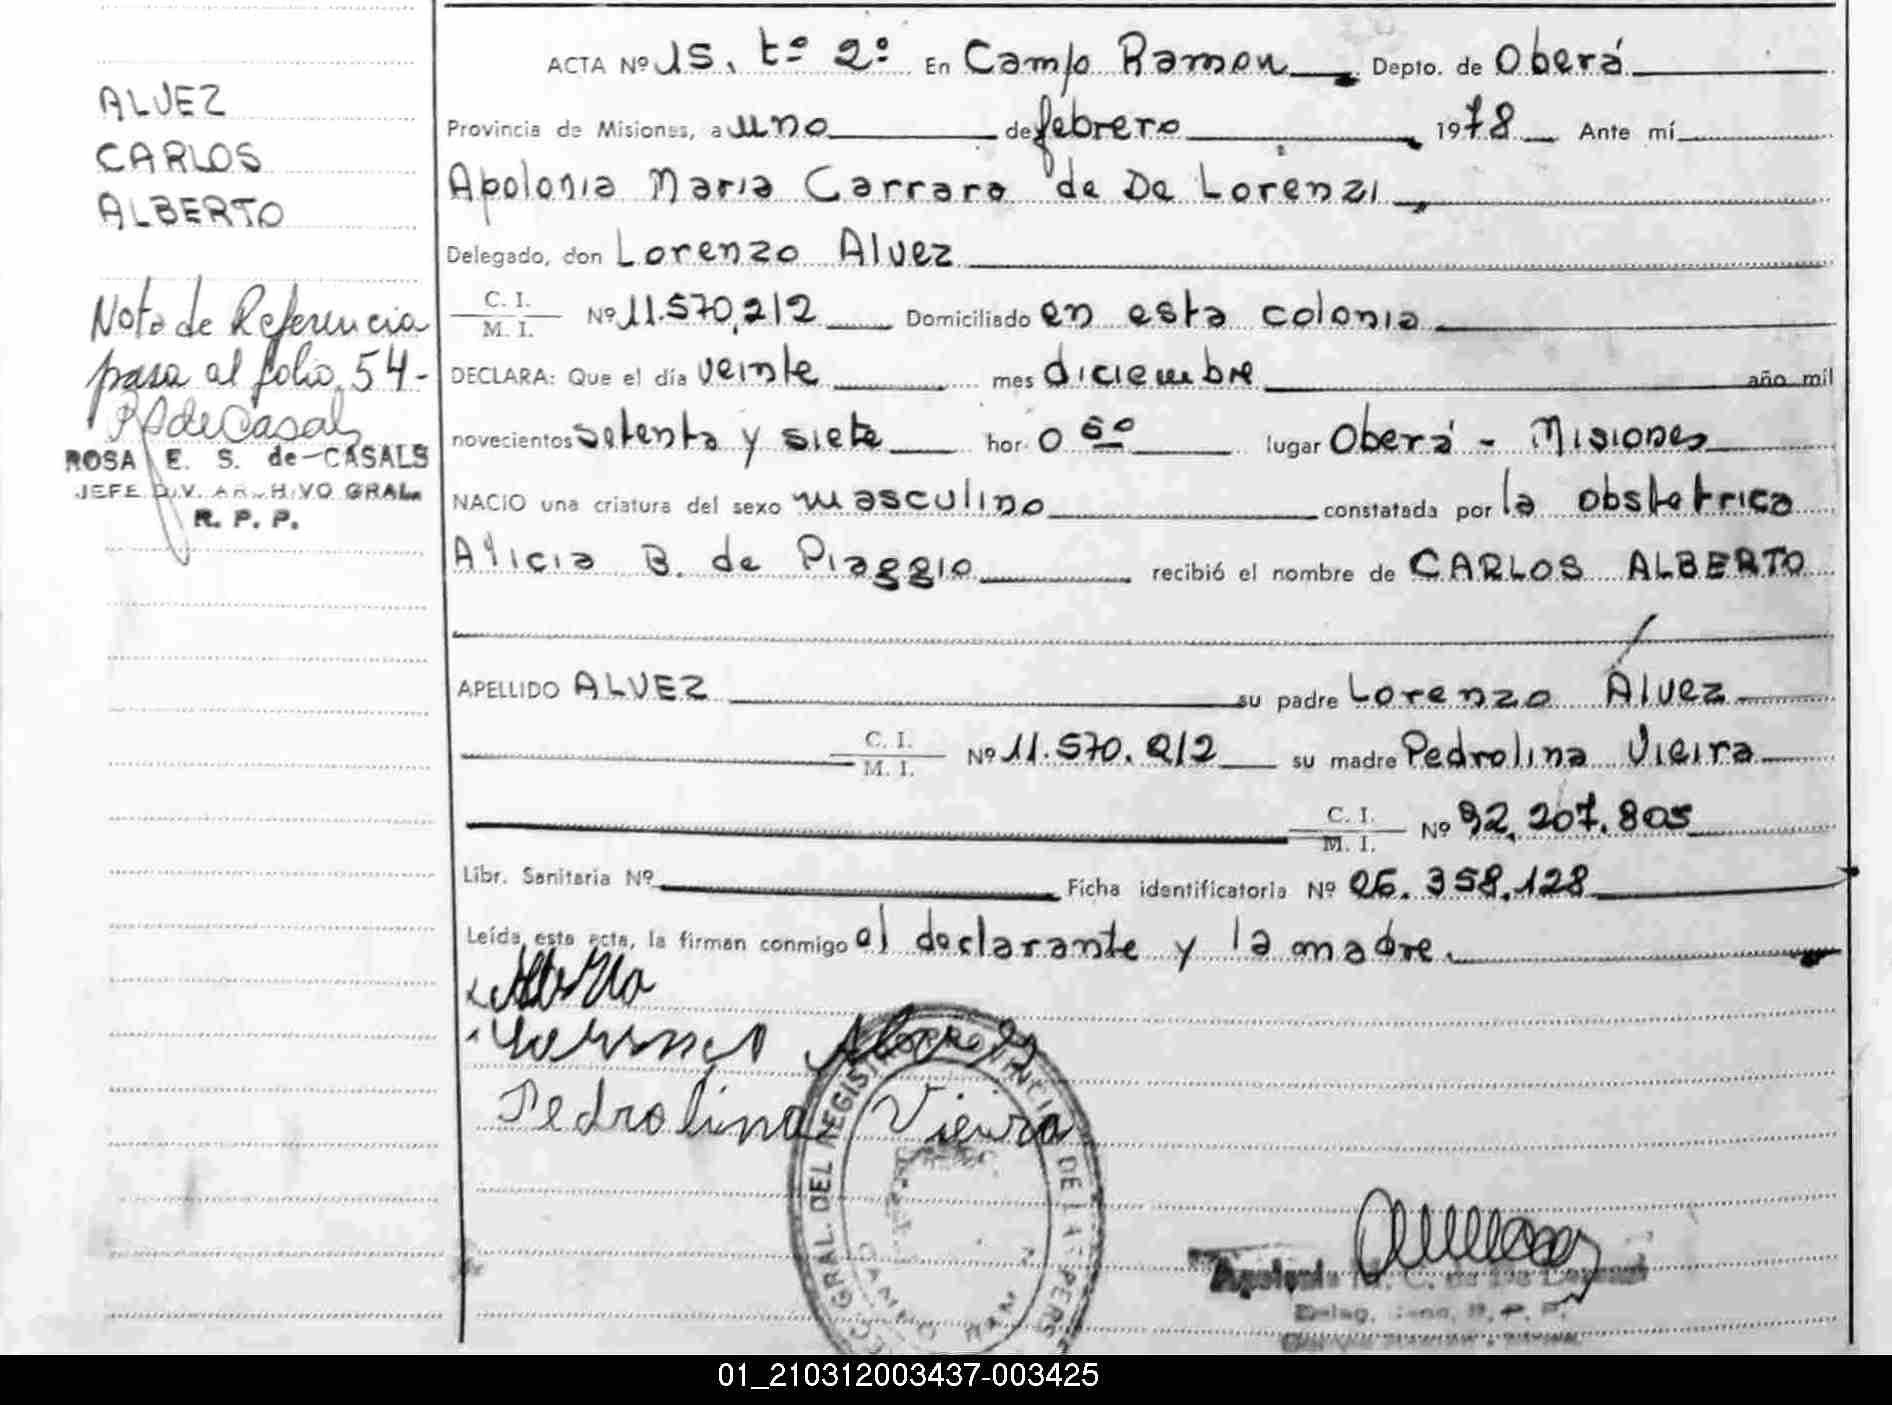 ALVEZ
CARLOS
ALBERTO
Nota de Referencia
pasa al folio 54-
ROSA E. S. de CASALS
JEFE DIV. ARCHIVO GRAL.
R. P. P.
ACTA Nº 15. tº 2º En Campo Ramon Depto. de Oberá
Provincia de Misiones, a uno de febrero 1978 Ante mí
Apolonia Maria Carrara de De Lorenzi
Delegado, don Lorenzo Alvez
C. I.
M. I. Nº 11.570.212 Domiciliado en esta colonia
DECLARA: Que el día veinte mes diciembre año mil
novecientos setenta y siete hor. 0 6º lugar Oberá - Misiones
NACIO una criatura del sexo masculino constatada por la obstetrica
Alicia B. de Piaggio recibió el nombre de CARLOS ALBERTO
APELLIDO ALVEZ su padre Lorenzo Alvez
C. I.
M. I. Nº 11.570.212 su madre Pedrolina Vieira
C. I.
M. I. Nº 92.207.805
Libr. Sanitaria Nº Ficha identificatoria Nº 26.358.128
Leída esta acta, la firman conmigo el declarante y la madre.
Pedrolina Vieira
GRAL. DEL REGISTRO PROVINCIAL DE LAS PERS
CAMPO RAM
Apolonia M. C. de De Lorenzi
01_210312003437-003425